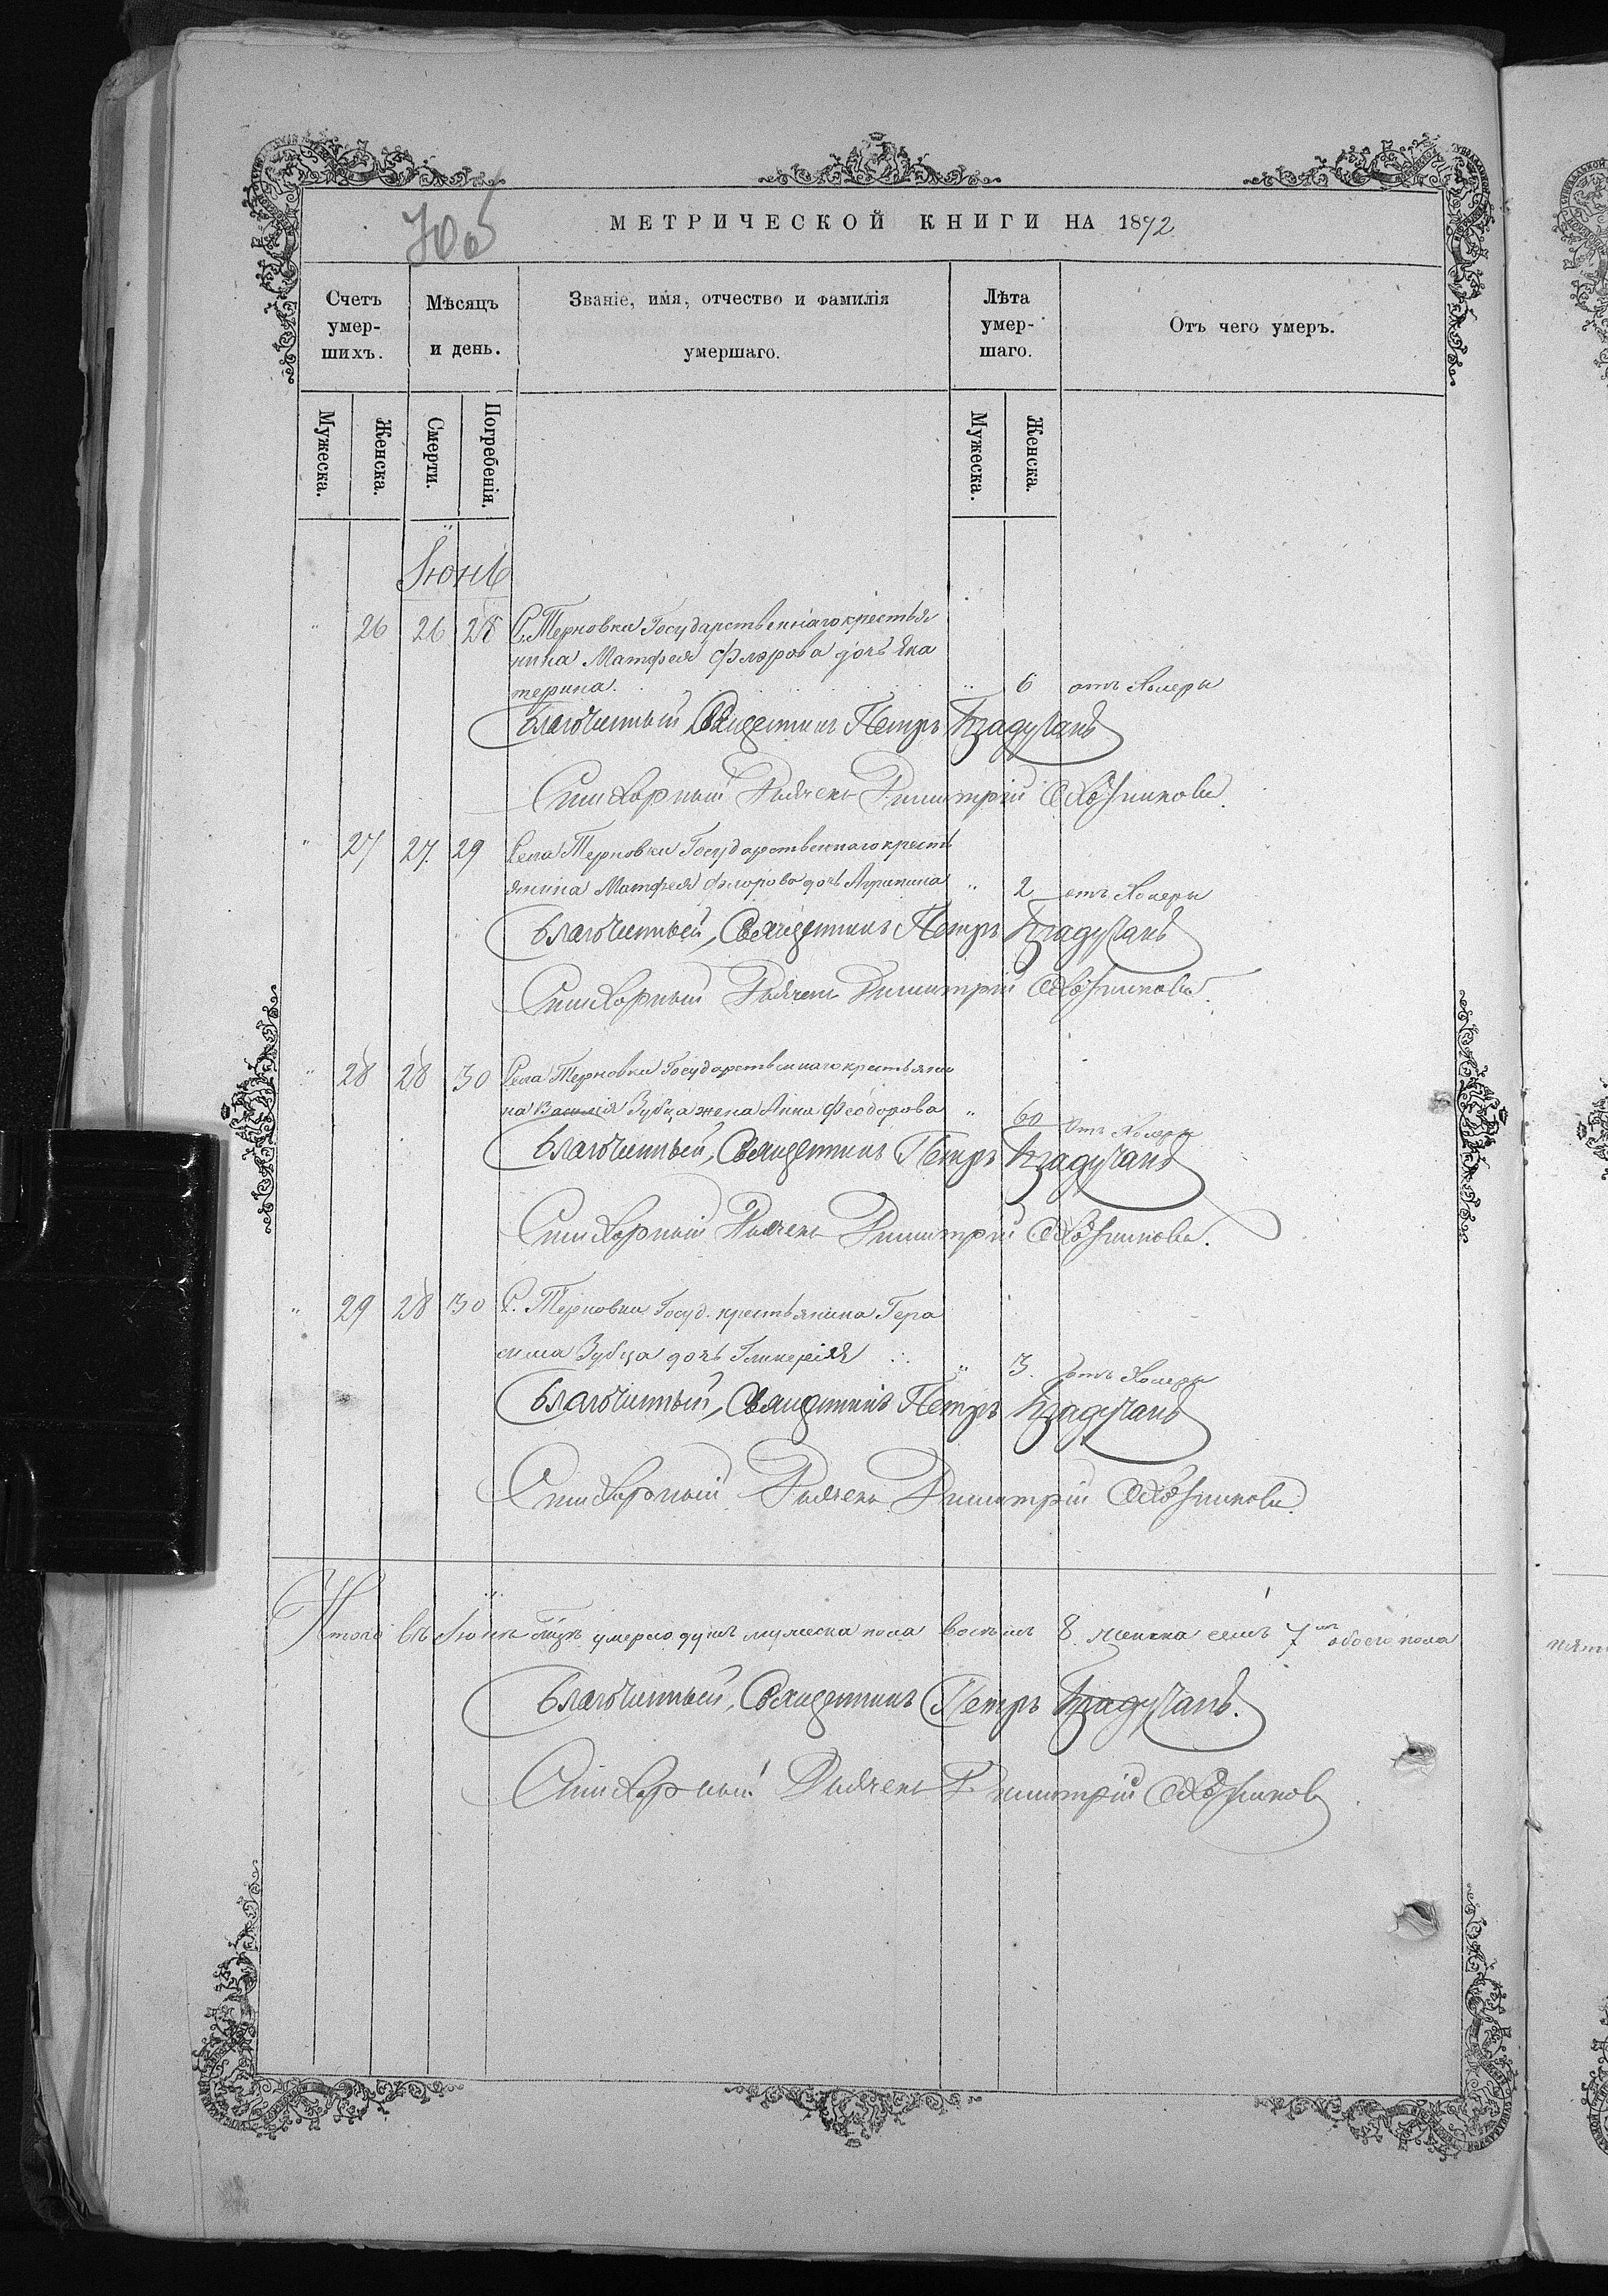 705
МЕТРИЧЕСКОЙ КНИГИ НА 1872
Счетъ умер-шихъ.
Мѣсяцъ и день.
Званіе, имя, отчество и фамилія умершаго.
Лѣта умер-шаго.
Отъ чего умеръ.
Мужеска.
Женска.
Смерти.
Погребенія.
Мужеска.
Женска.
Іюнь
" 26 26 28 С. Терновки Государственнаго крестья
нина Матфея Флорова дочь Ека
терина. " 6 отъ холеры
Благочинный, Священникъ Петръ
Стихарный Дьячекъ Димитрій
" 27 27. 29 Села Терновки Государственнаго кресть
янина Матфея Флорова дочь Агрипина " 2 отъ холеры
Благочинный, Священникъ Петръ
Стихарный Дьячекъ Димитрій
" 28 28 30 Села Терновки Государственнаго крестьяни
на Василія Зубца жена Анна Феодорова " 60 отъ холеры
Благочинный, Священникъ Петръ
Стихарный Дьячекъ Димитрій
" 29 28 30 С. Терновки Госуд. крестьянина Гера
сима Зубца дочь Гликерія " 3. отъ холеры
Благочинный, Священникъ Петръ
Стихарный Дьячекъ Димитрій
Итого въ Іюнѣ умерло душъ мужеска пола восемь 8. женска семь 7 обоего пола
Благочинный, Священникъ Петръ
Стихарный Дьячекъ Димитрій